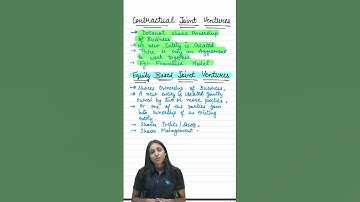 Contractual Joint Ventures
→ Doesnot share Ownership
of Business
→ No new Entity is Created
→ There is only an Agreement
to work together
→ Eg: Franchise Model
Equity Based Joint Ventures
→ Shares Ownership of Business.
→ A new entity is created jointly
owned by two or more parties.
→ Or one of the parties join
into ownership of an existing
entity
→ Shares Profits/Losses.
→ Shares Management.